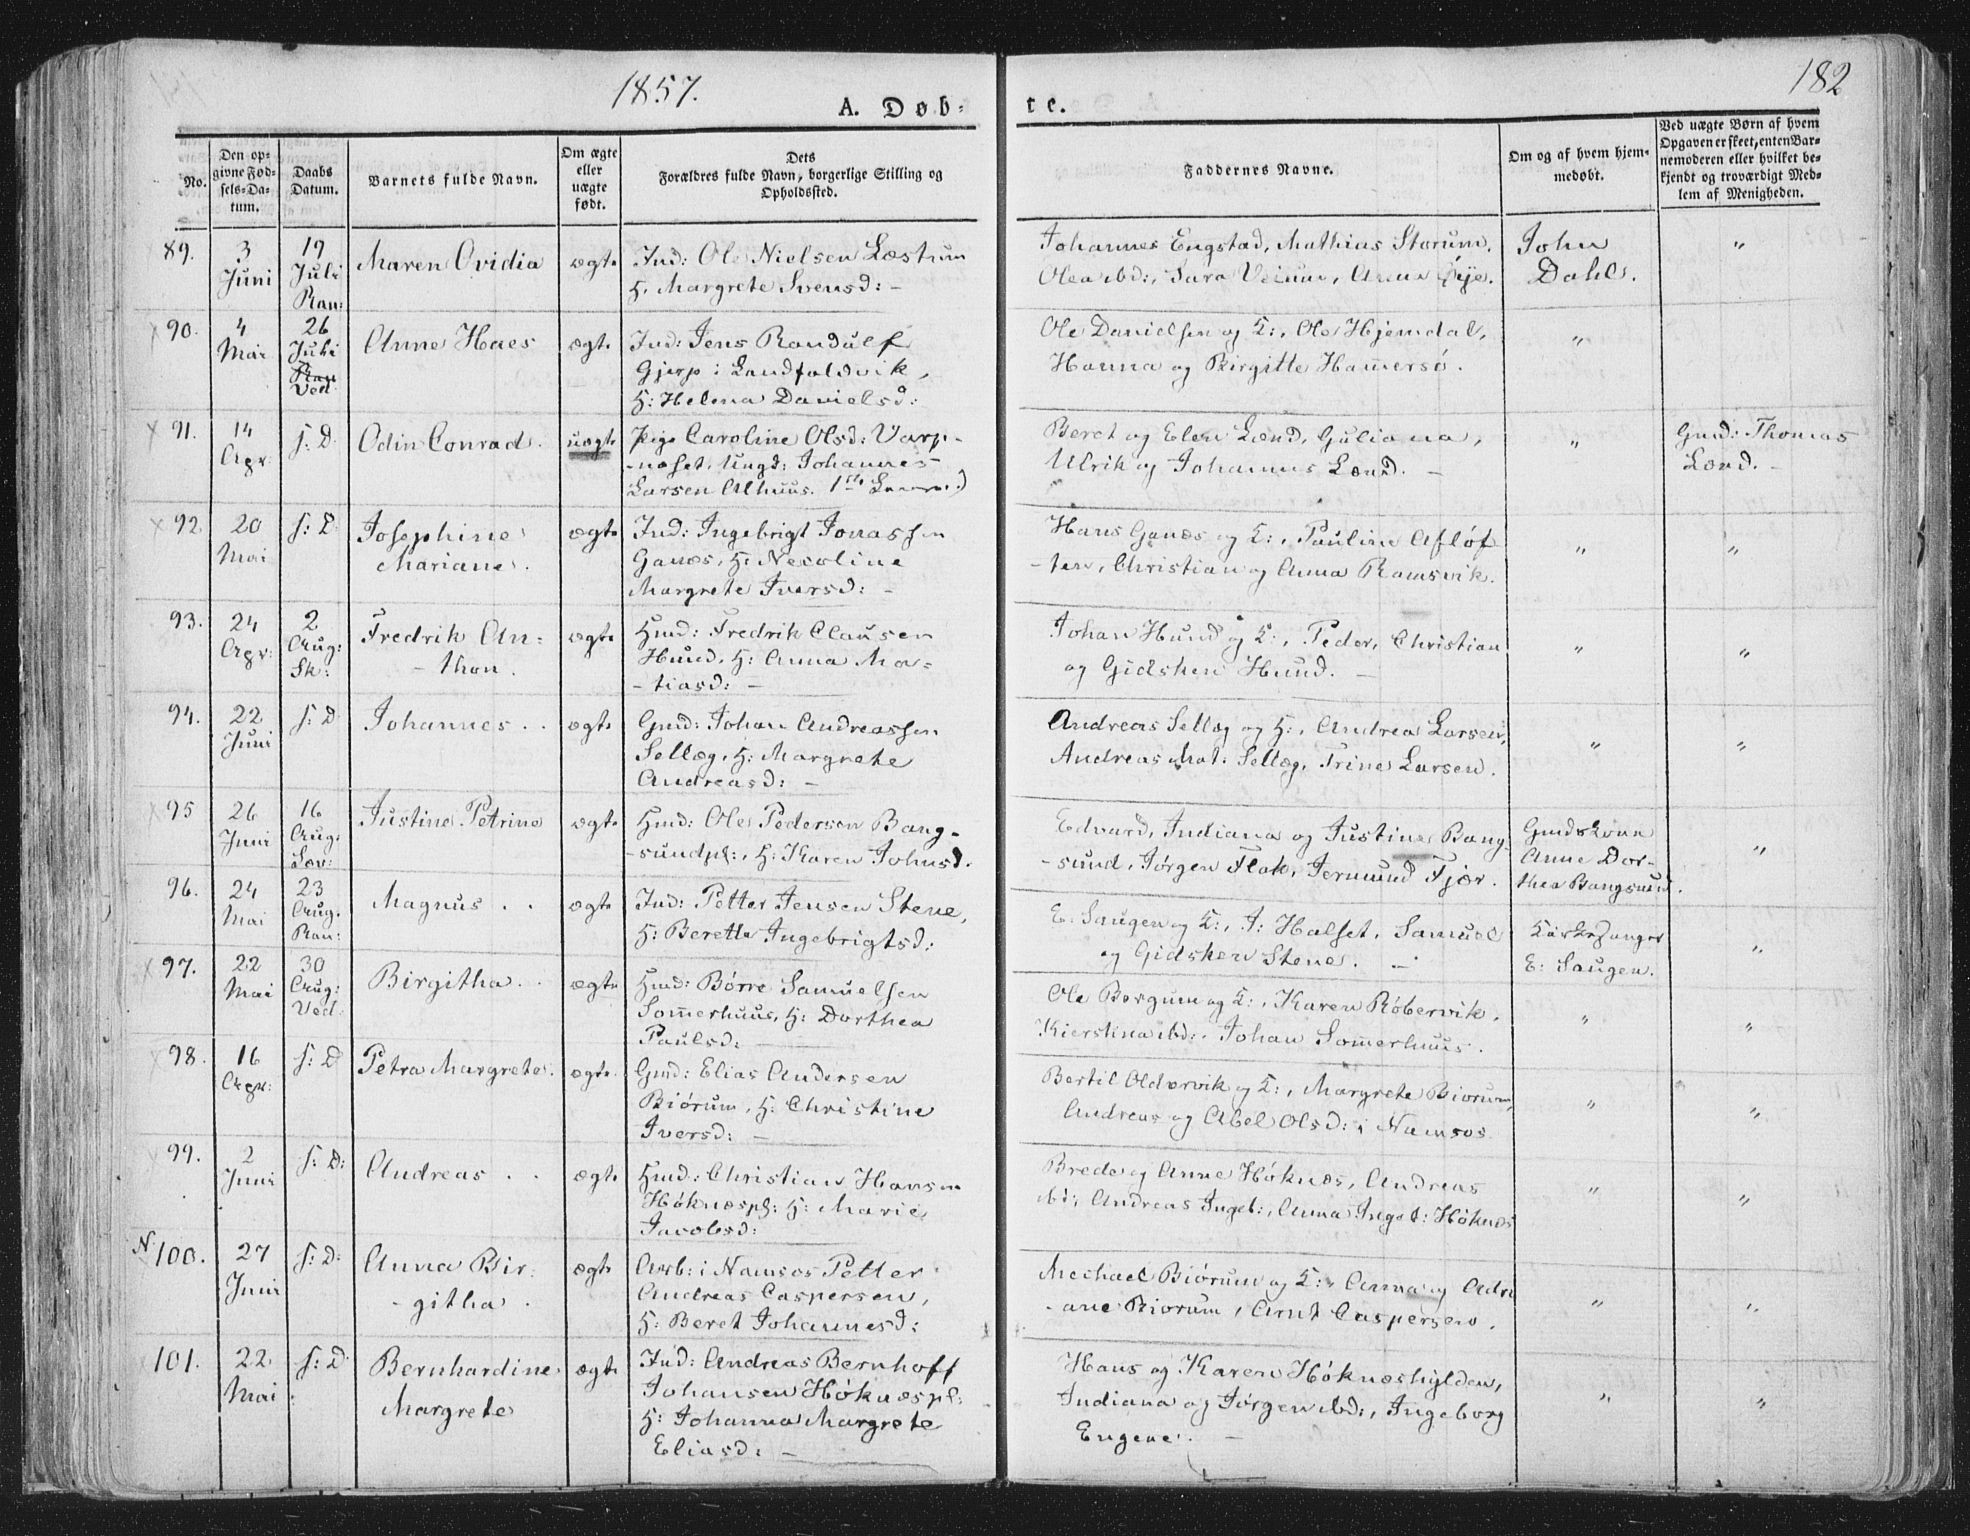 1857.
182
A. Døb-
te.
No.
Den op-
givne Fød-
sels-Da-
tum.
Daabs
Datum.
Barnets fulde Navn.
Om ægte
eller
uægte
født.
Dets
Forældres fulde Navn, borgerlige Stilling og
Opholdssted.
Faddernes Navne.
Om og af hvem hjem-
medøbt.
Ved uægte Børn af hvem
Opgaven er skeet, enten Bar-
nemoderen eller hvilket be-
kjendt og troværdigt Med-
lem af Menigheden.
89.
3
Juni
19
Juli
Ran:
Maren Ovidia
ægte
Ind: Ole Nielsen Læstum
H. Margrete Svensd: -
Johannes Engstad, Mathias Storum,
Olea ibd:, Sara Veium, Anna Øie.
John
Dahl.
"
90.
4
Mai
26
Juli
Ran
Ved
Anne Haes
ægte
Ind: Jens Randulf
Gjerp i Landfaldvik,
H: Helena Danielsd:
Ole Danielsen og K:, Ole Hjemdal,
Hanna og Birgitte Hamersø.
"
91.
14
Apr.
s: D.
Odin Conrad.
uægte
Pige Caroline Olsd: Varp-
-neset. Ungd: Johannes
Larsen Alhuus. 1ste
Beret og Elen Lænd, Guliana,
Ulrik og Johannes Lænd. -
"
Gmd: Thomas
Lænd. -
92
20
Mai
s: D.
Josephine
Mariane.
ægte
Ind: Ingebrigt Jonassen
Ganæs, H: Nicoline
Margrete Iversd: -
Hans Ganæs og K:, Pauline Afløf-
-ten, Christian og Anna Ramsvik.
"
"
93.
24
Apr:
2
Aug:
Sk:
Fredrik An-
-thon.
ægte
Hmd: Fredrik Clausen
Hund, H: Anna Ma-
-tiasd: -
Johan Hund og K:, Peder, Christian
og Gidsken Hund. -
"
"
94.
22
Juni
s: D
Johannes . .
ægte
Gmd: Johan Andreassen
Sellæg, H: Margrete
Andreasd: -
Andreas Sellæg og H:, Andrea Larsen,
Andreas Mat: Sellæg, Trine Larsen.
"
"
95
26
Juni
16
Aug:
Lav:
Justine Petrine
ægte
Hmd: Ole Pedersen Bang-
-sundpl:, H: Karen Johnsd.
Edvard, Indiana og Justine Bang-
-sund, Jørgen Flak, Jermund Fjær.
Gmdskone
Anne Dor-
thea Bangsund.
"
96.
24
Mai
23
Aug.
Ran:
Magnus . .
ægte
Ind: Petter Jensen Stene,
H: Berette Ingebrigtsd:
E. Saugen og K:, J: Halset, Samuel
og Gidsken Stene. -
Kirkesanger
E: Saugen.
"
97.
22
Mai
30
Aug:
Ved:
Birgitha. .
ægte
Hmd: Børre Samuelsen
Somerhuus, H: Dorthea
Paulsd:
Ole Bergum og K:, Karen Røbervik,
Kierstina ibd:, Johan Somerhuus.
"
"
98.
16
Apr:
s: D
Petra Margrete.
ægte
Gmd: Elias Andersen
Biørum, H: Christine
Iversd: -
Bertil Oldervik og K:, Margrete Biorum,
Andreas og Abel Olsd: i Namsos
"
"
99.
2
Juni
s: D:
Andreas . .
ægte
Hmd: Christian Hansen
Høknæspl: H: Marie
Jacobsd:
Brede og Anne Høknæs, Andreas
ibd:, Andreas Ingeb:, Anna Ingeb: Høknæs
"
"
N. 100.
27
Juni
s: D:
Anna Bir-
-githa.
ægte
Arb: i Namsos Petter
Andreas Caspersen,
H: Beret Johannesd:
Mechael Biórum og K:, Anna og Adri-
-ane Biorum, Arnt Caspersen.
"
"
101.
22
Mai
s: D.
Bernhardine
Margrete
ægte
Ind: Andreas Bernhoff
Johansen Høknæspl:
H: Johanna Margrete
Eliasd: -
Hans og Karen Høknæshylden,
Indiana og Jørgen ibd:, Ingeborg
Engene. -
"
"